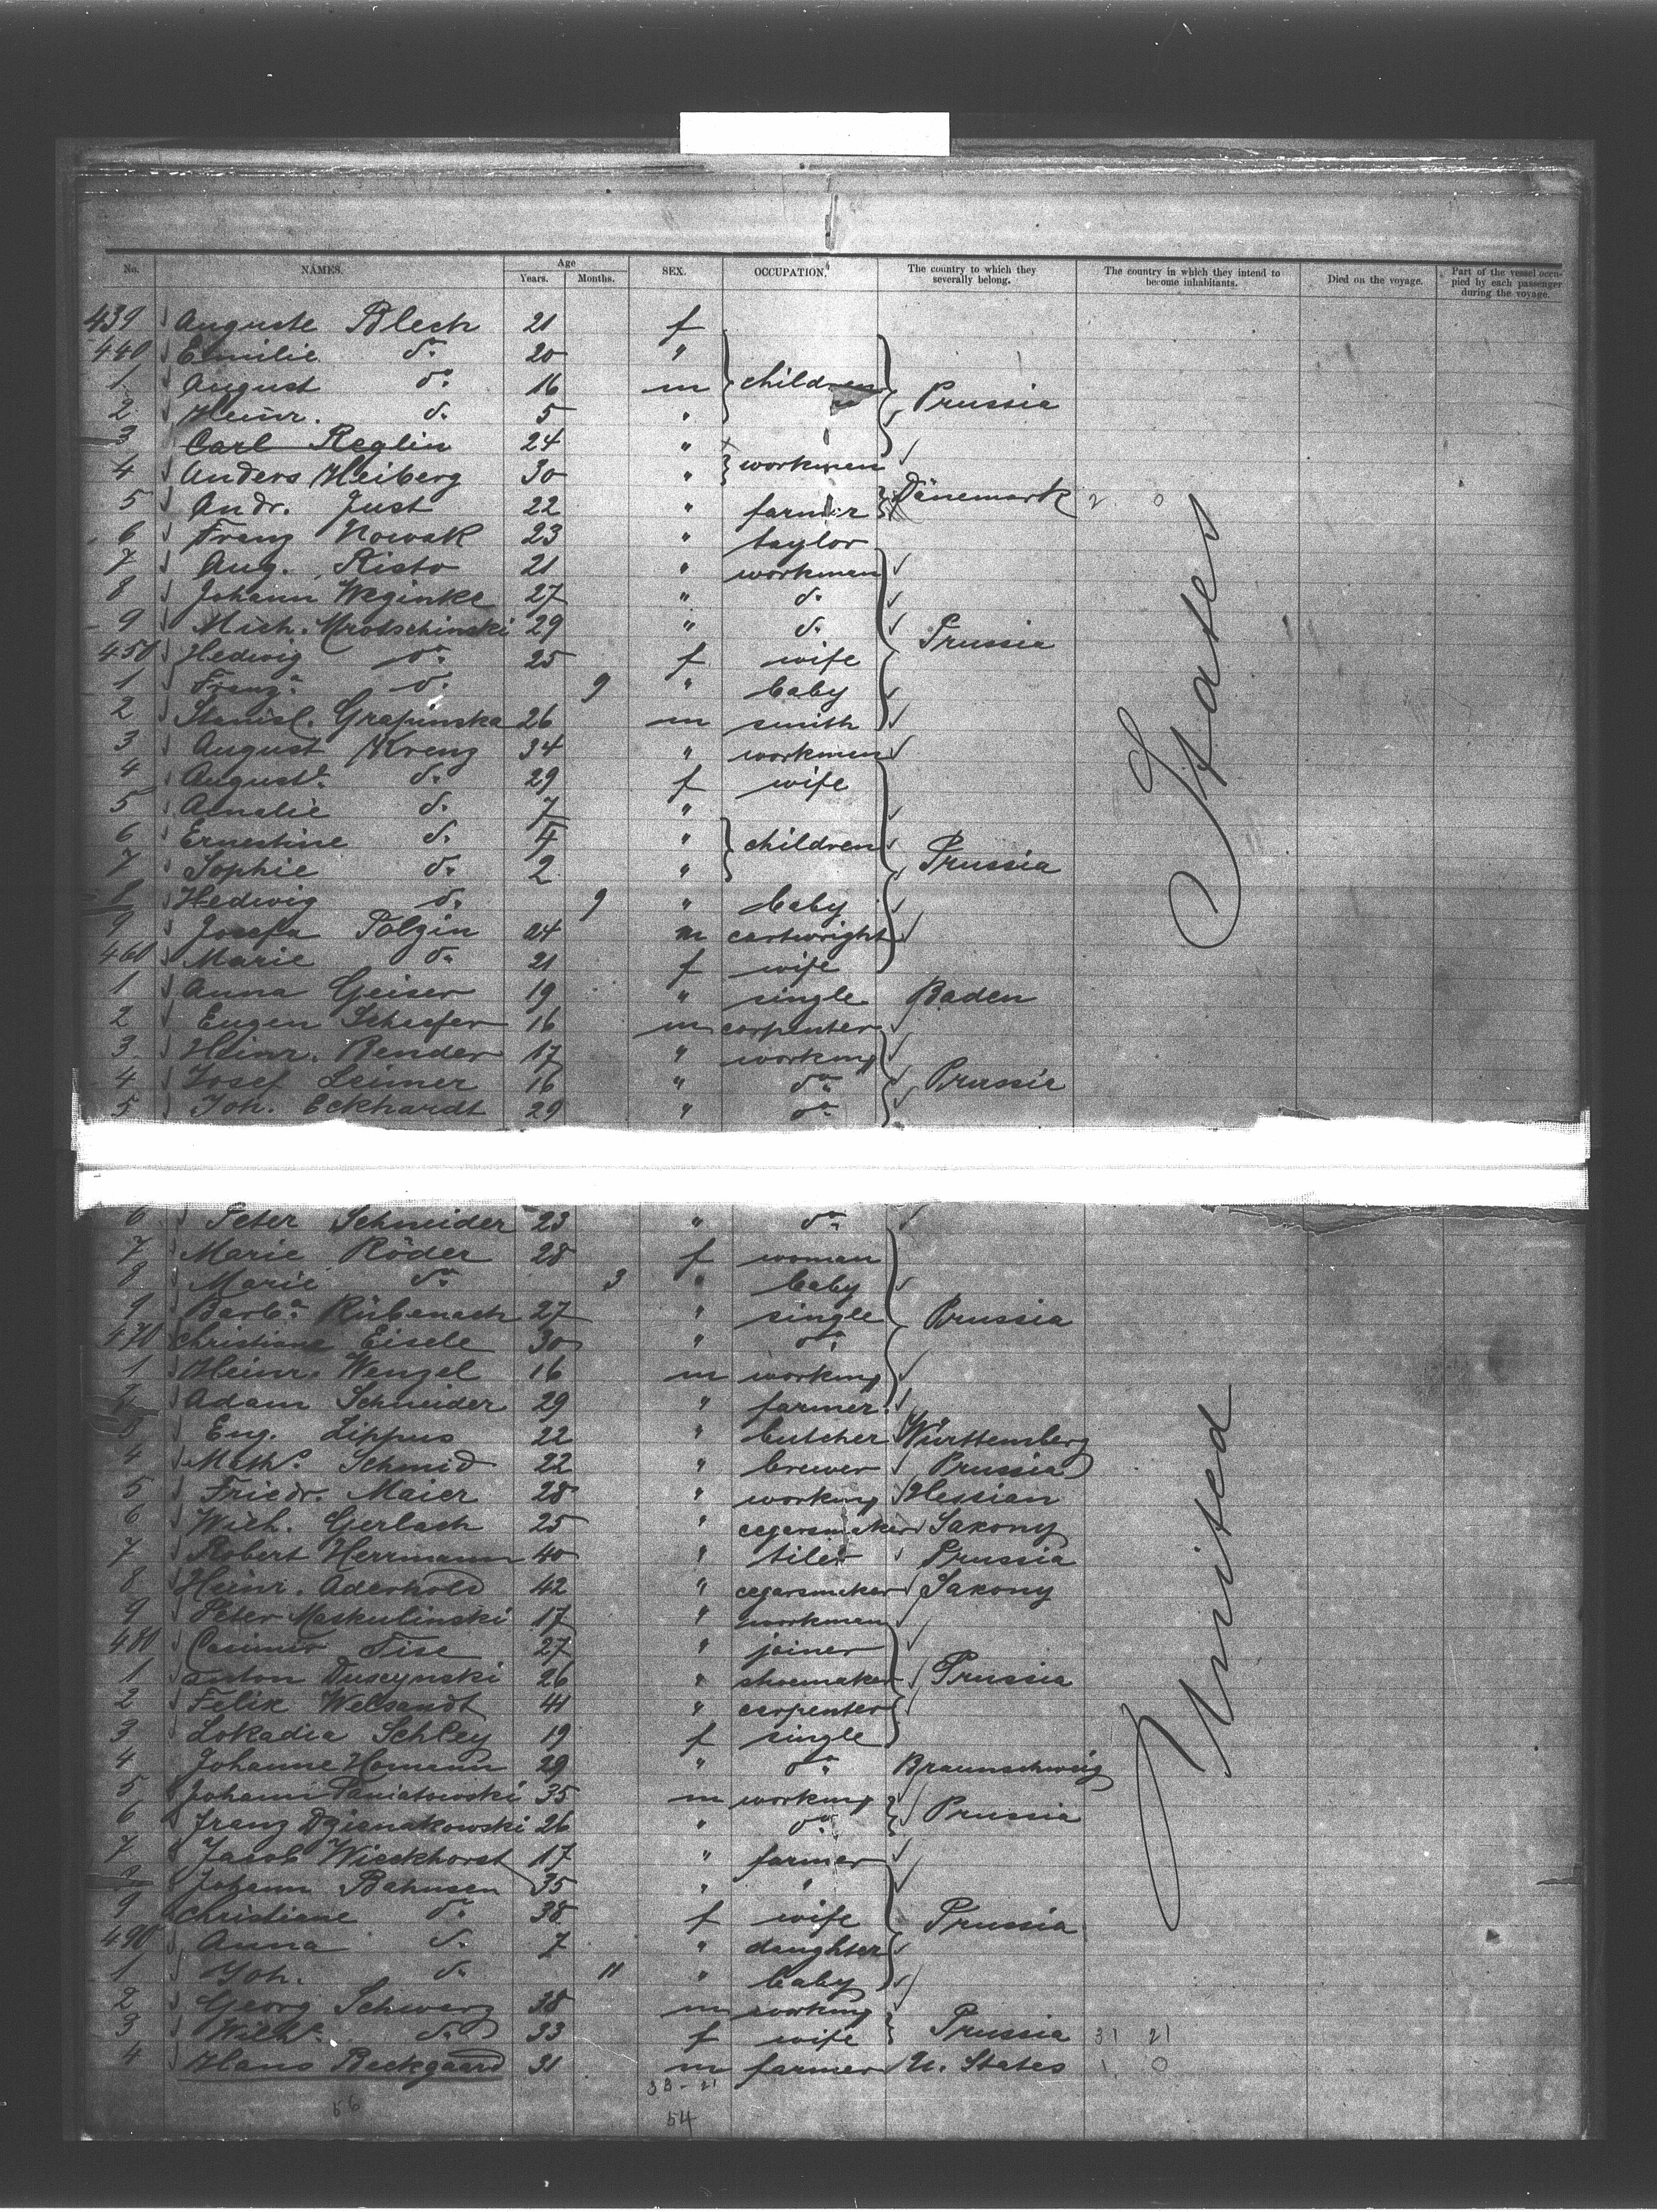 No. NAMES. Age Years. Months. SEX. OCCUPATION. The country to which they severally belong. The country in which they intend to become inhabitants. Died on the voyage. Part of the vessel occupied by each passenger during the voyage.
439 Auguste Blech 21 f
440 Emilie do. 20 "
1 August do. 16 m children Prussia
2 Heinr. do. 5 "
3 Carl Reglin 24 "
4 Anders Heiberg 30 " workmen
5 Andr. Just 22 " farmer Dänemark 2 0
6 Franz Nowak 23 " taylor
7 Aug. Risto 21 " workmen
8 Johann Weginke 27 " do.
9 Mich. Mrotschinski 29 " do. Prussia
450 Hedwig do. 25 f wife
1 Franz.a do. 9 " baby
2 Stanisl. Grapinska 26 m smith
3 August Krenz 34 " workmen
4 August.e do. 29 f wife
5 Amalie do. 7 "
6 Ernestine do. 4 " children
7 Sophie do. 2 " Prussia
8 Hedwig do. 9 " baby
9 Josefa Polzin 24 m cartwright
460 Marie do. 21 f wife
1 Anna Geiser 19 " single Baden
2 Eugen Schaefer 16 m carpenter
3 Heinr. Bender 17 " working
4 Josef Leimer 16 " do. Prussia
5 Joh. Eckhardt 29 " do.
6 Peter Schneider 23 " do.
7 Marie Röder 28 f woman
8 Marie do. 3 " baby
9 Barb.a Rübenach 27 " single Prussia
470 Christiane Eisele 30 " do.
1 Heinr. Wenzel 16 m working
2 Adam Schneider 29 " farmer
3 Eug. Lippus 22 " butcher Württemberg
4 Math.s Schmid 22 " brewer Prussia
5 Friedr. Maier 28 " working Hessian
6 Wilh. Gerlach 25 " cegarsmaker Saxony
7 Robert Herrmann 40 " tiler Prussia
8 Heinr. Aderhold 42 " cegarsmaker Saxony
9 Peter Maskulinski 17 " workmen
480 Casimir Tise 27 " joiner
1 Anton Duscynski 26 " shoemaker Prussia
2 Felix Welsandt 41 " carpenter
3 Lokadia Schley 19 f single
4 Johanne Homann 29 " do. Braunschweig
5 Johann Paniatowski 35 m working Prussia
6 Franz Dzienakowski 26 " do.
7 Jacob Wieckhorst 17 " farmer
8 Johann Bahnsen 35 " "
9 Christiane do. 38 f wife Prussia
490 Anna do. 7 " daughter
1 Joh. do. 11 " baby
2 Georg Schwarz 38 m working
3 Wilh.e do. 33 f wife Prussia 31 21
4 Hans Beckgaard 31 m farmer U. States 1 0
33 - 21
56 54
United States